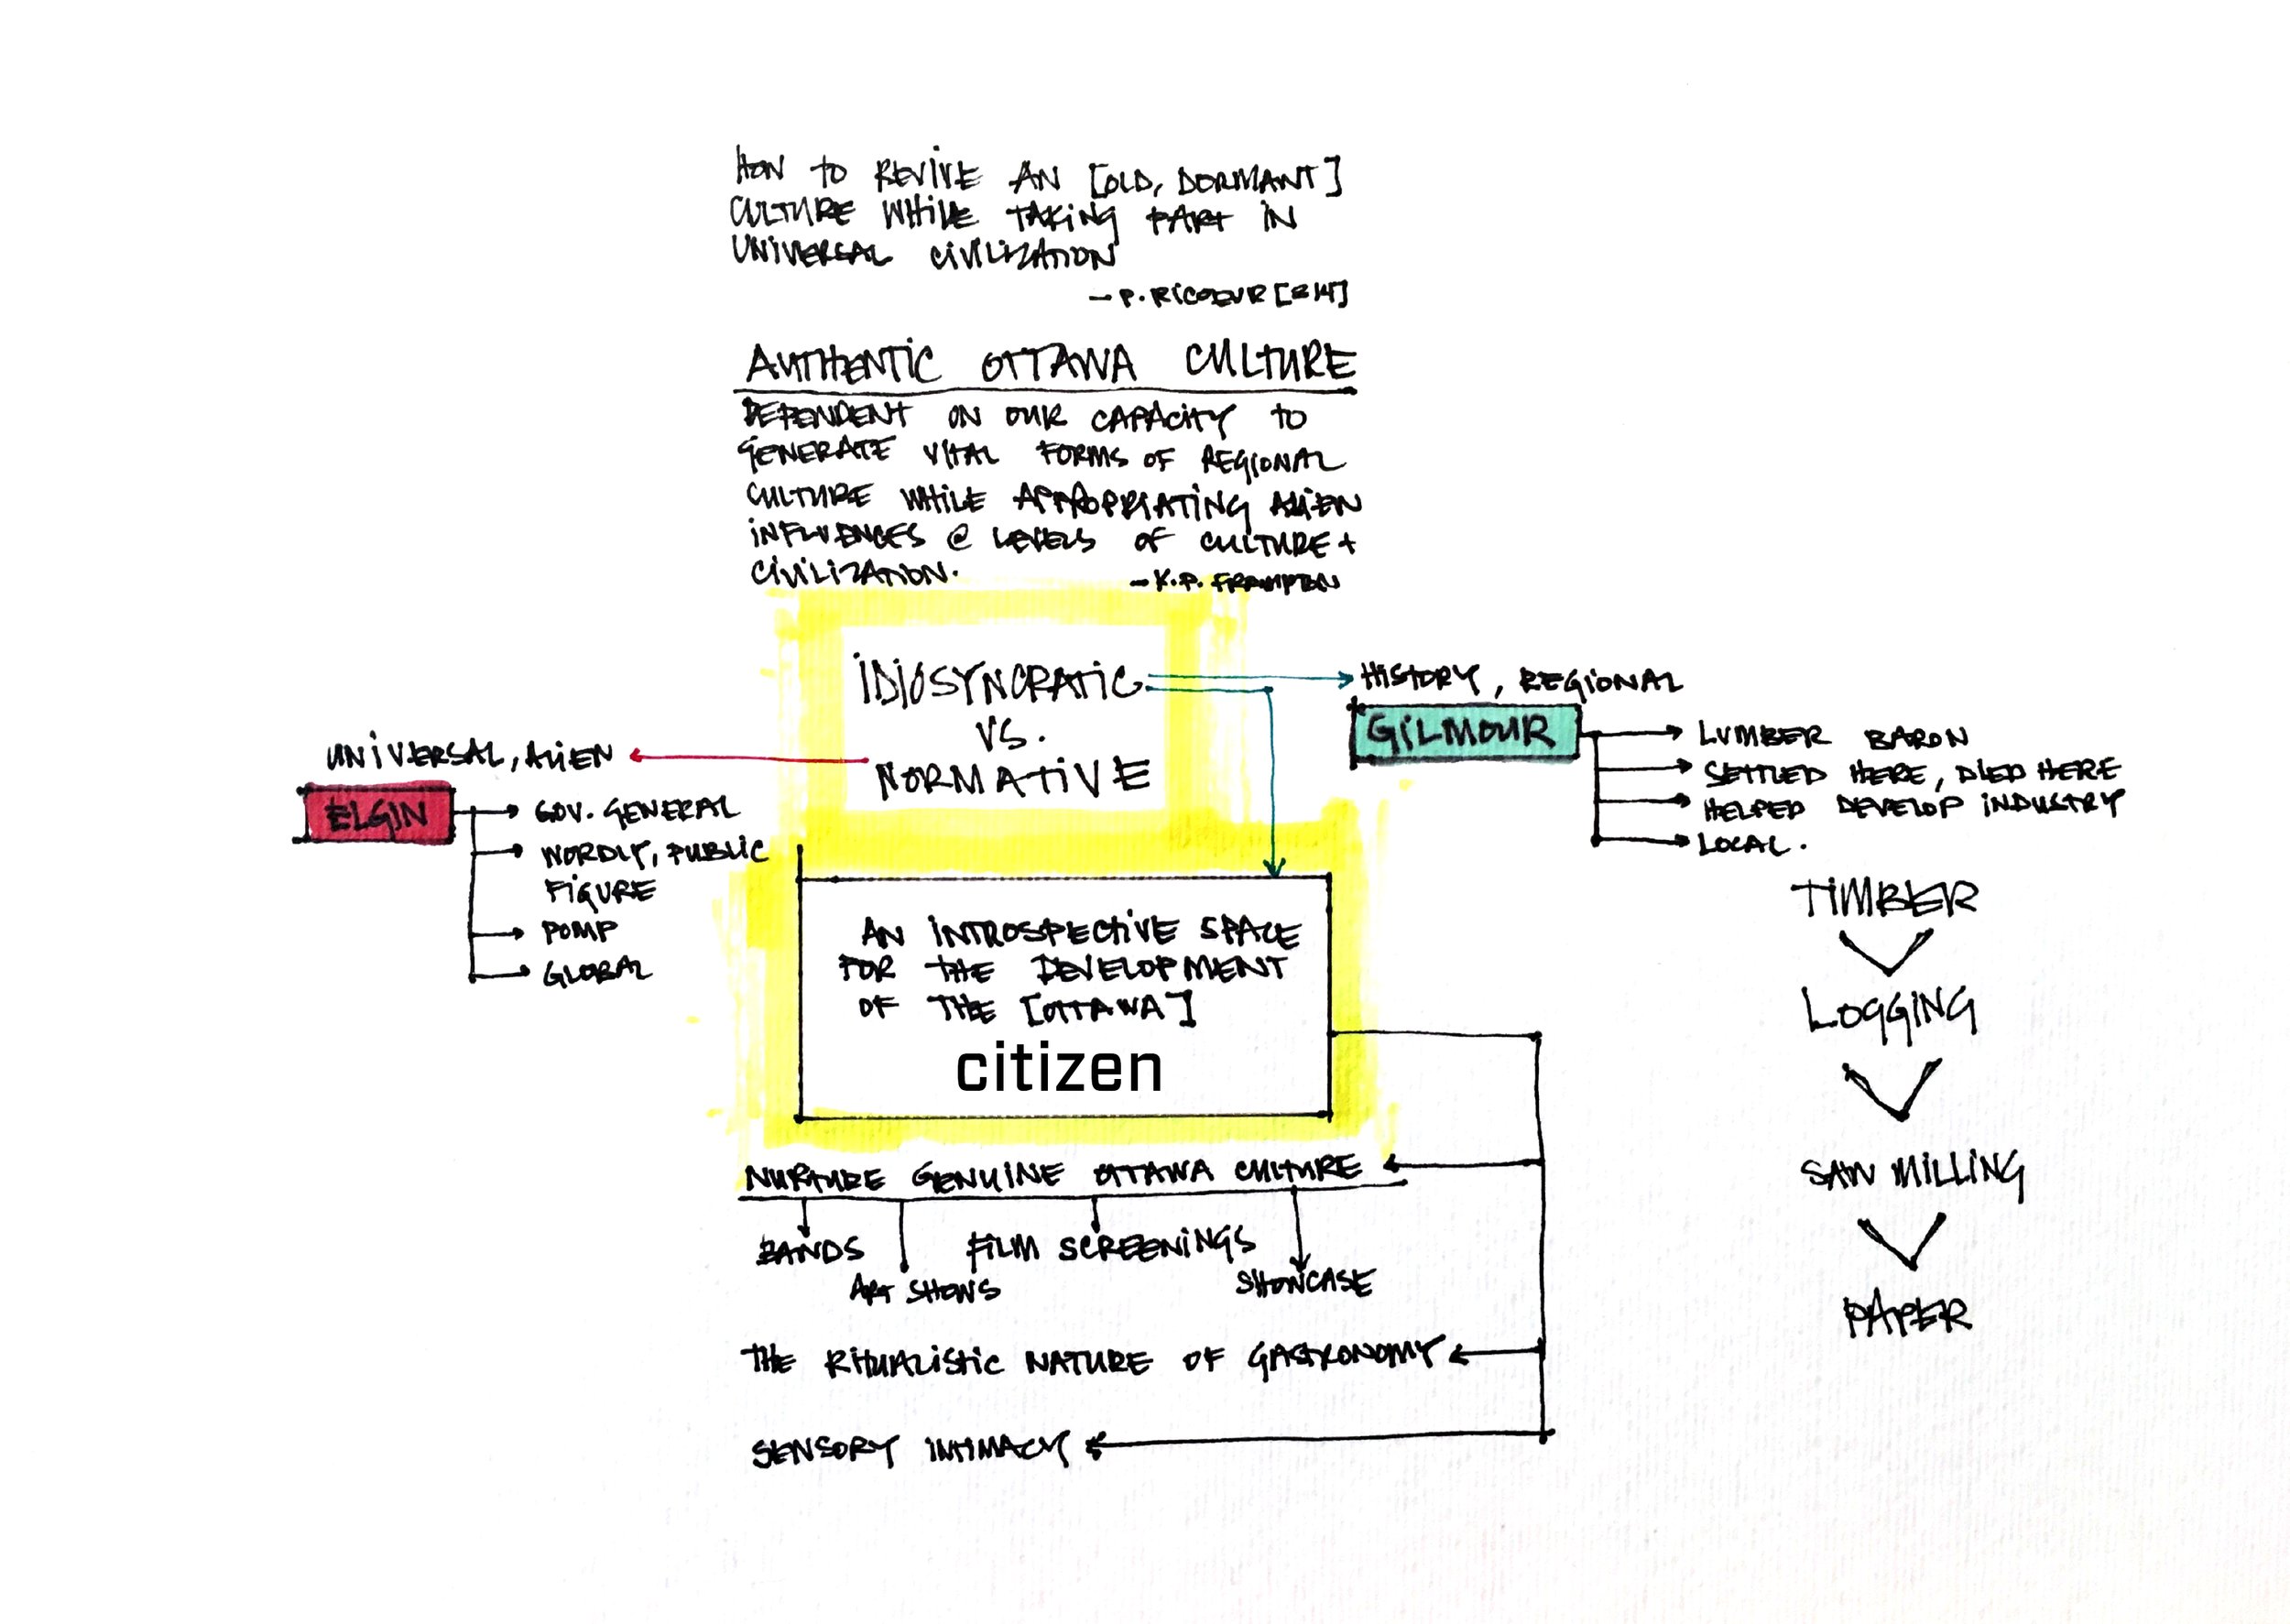 HOW TO REVIVE AN [OLD, DORMANT]
CULTURE WHILE TAKING PART IN
UNIVERSAL CIVILIZATION
— P. RICOEUR
AUTHENTIC OTTAWA CULTURE
DEPENDENT ON OUR CAPACITY TO
GENERATE VITAL FORMS OF REGIONAL
CULTURE WHILE APPROPRIATING ALIEN
INFLUENCES @ LEVELS OF CULTURE +
CIVILIZATION.
— K.P. FRAMPTON
IDIOSYNCRATIC
VS.
NORMATIVE
UNIVERSAL, ALIEN
ELGIN
GOV. GENERAL
WORDLY, PUBLIC
FIGURE
POMP
GLOBAL
HISTORY, REGIONAL
GILMOUR
LUMBER BARON
SETTLED HERE, DIED HERE
HELPED DEVELOP INDUSTRY
LOCAL.
AN INTROSPECTIVE SPACE
FOR THE DEVELOPMENT
OF THE [OTTAWA]
citizen
NURTURE GENUINE OTTAWA CULTURE
BANDS
ART SHOWS
FILM SCREENINGS
SHOWCASE
THE RITUALISTIC NATURE OF GASTRONOMY
SENSORY INTIMACY
TIMBER
LOGGING
SAW MILLING
PAPER